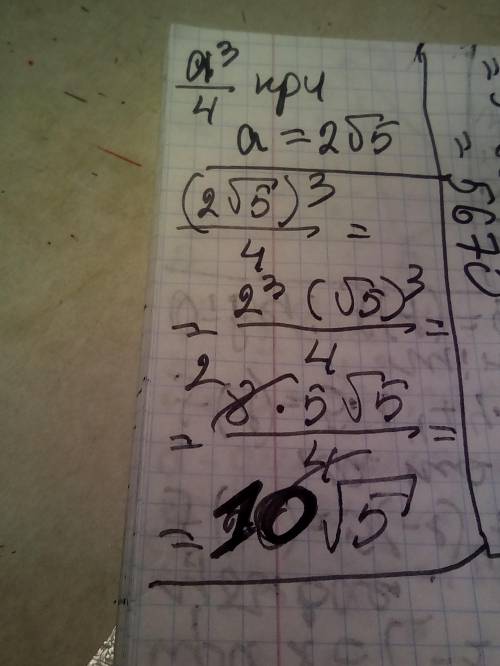 a³/4 при
a = 2√5
(2√5)³/4 =
= 2³ (√5)³/4 =
= 2 8 · 5√5/4 =
= 10√5
= 5670